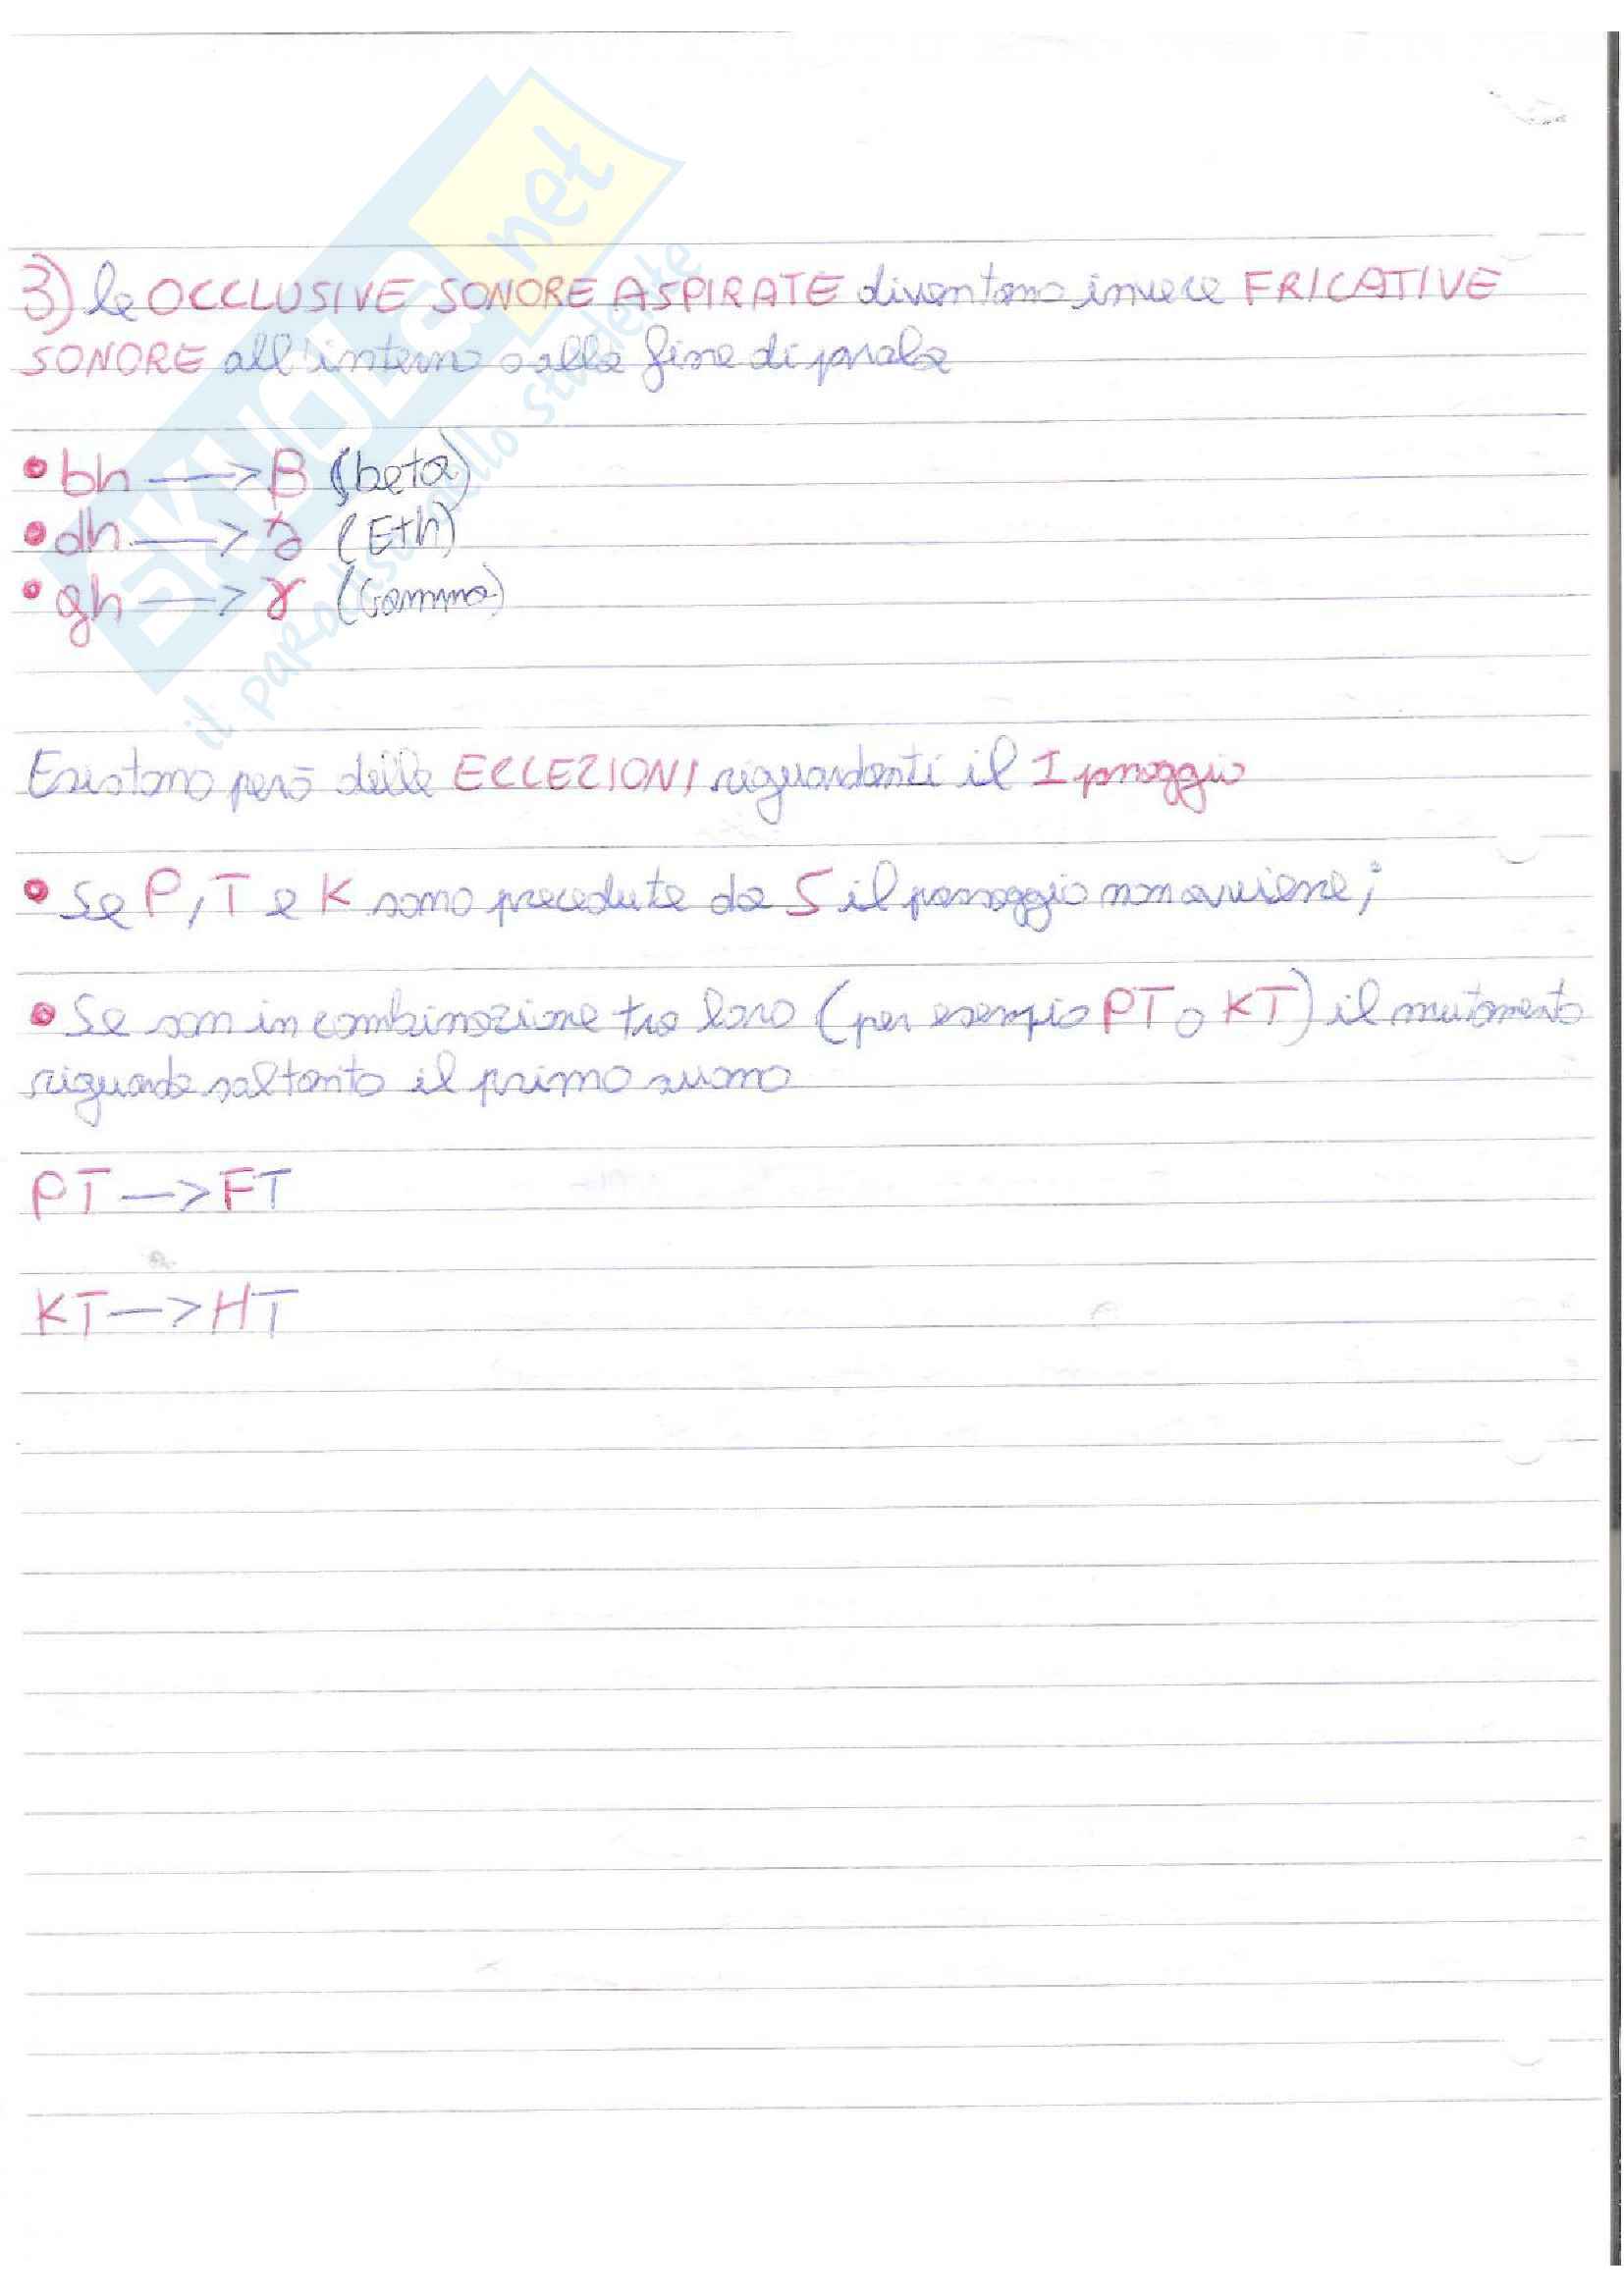 3) le OCCLUSIVE SONORE ASPIRATE diventano invece FRICATIVE
SONORE all'interno o alla fine di parola
• bh —> β (beta)
• dh —> ð (Eth)
• gh —> γ (Gamma)
Esistono però delle ECCEZIONI riguardanti il I passaggio
• Se P, T e K sono precedute da S il passaggio non avviene;
• Se son in combinazione tra loro (per esempio PT o KT) il mutamento
riguarda soltanto il primo suono
PT —> FT
KT —> HT
SKUOLA.net
il paradiso dello studente